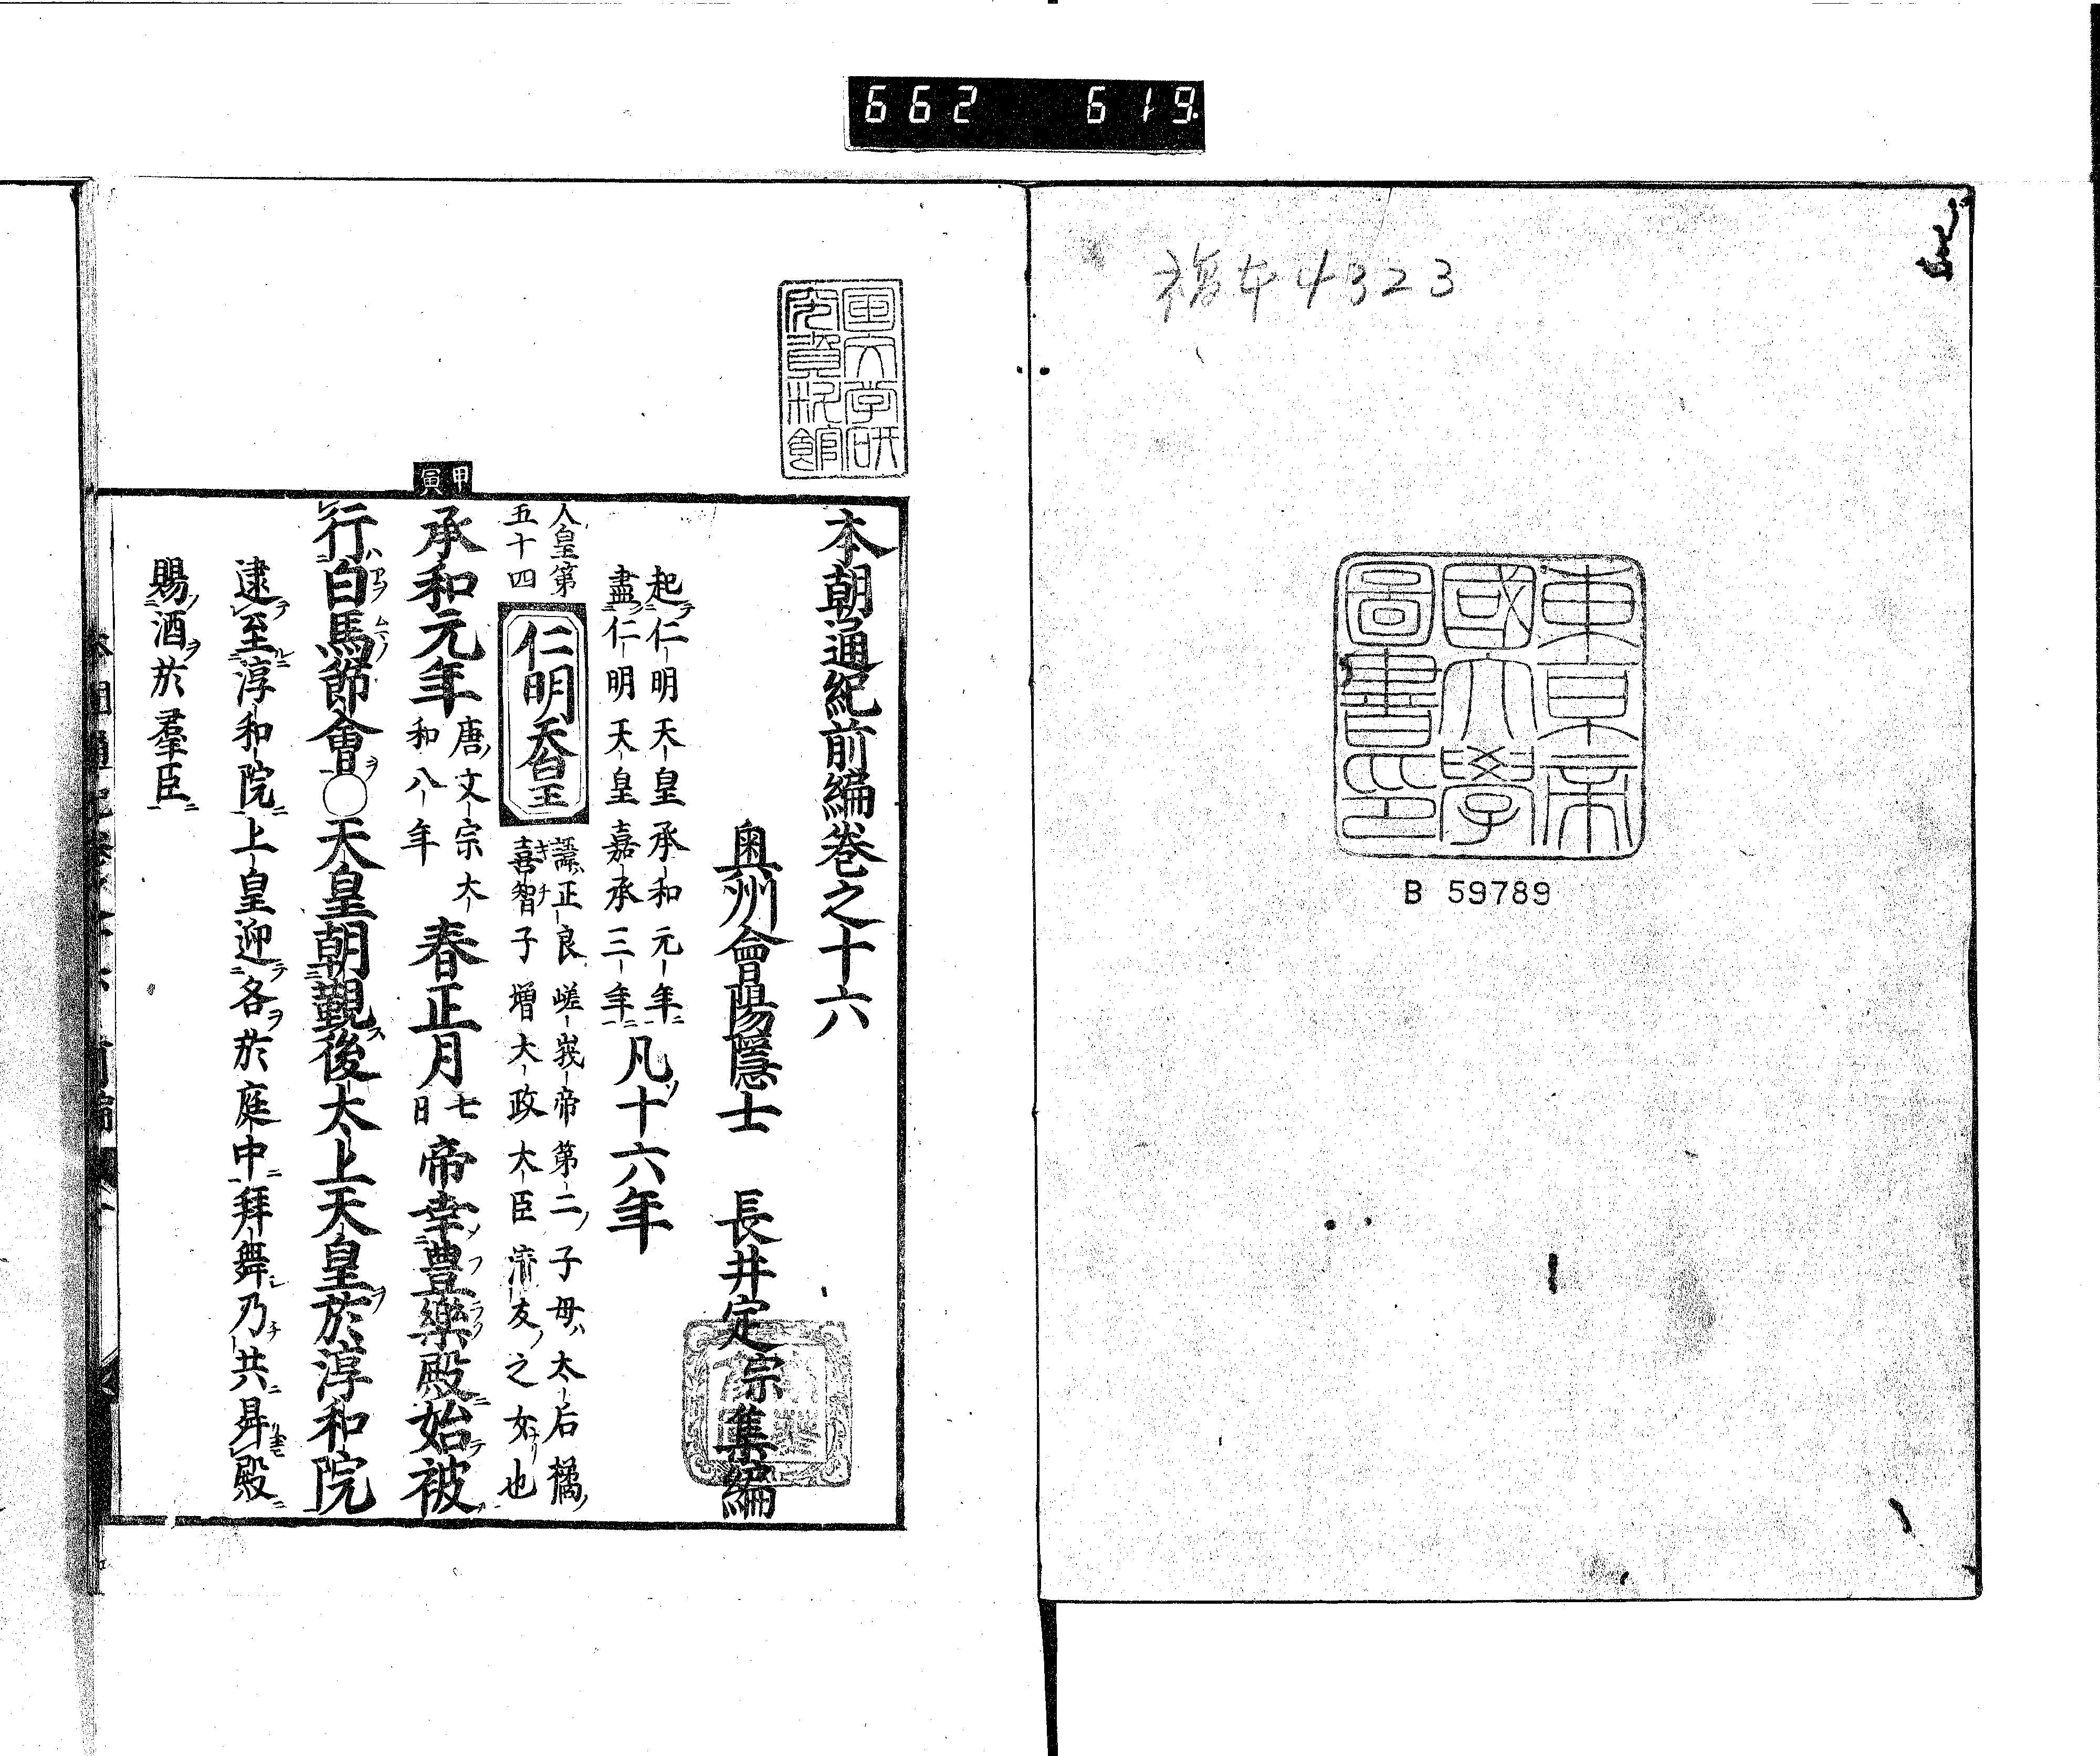 662 619
複本4323
東京帝
國大學
圖書印
B 59789
国文学研
究資料館
本朝通紀前編巻之十六
奥州會陽隱士 長井定宗集編
起仁明天皇承和元年
盡仁明天皇嘉承三年
凡十六年
人皇第
五十四
仁明天皇
諱正良嵯峩帝第二子母太后橘
喜智子増大政大臣清友之女也
甲寅
承和元年
唐文宗太
和八年
春正月
七日
帝幸豊樂殿始被
行白馬節會○天皇朝覲後太上天皇於淳和院
逮至淳和院上皇迎各於庭中拜舞乃共昇殿
賜酒於羣臣